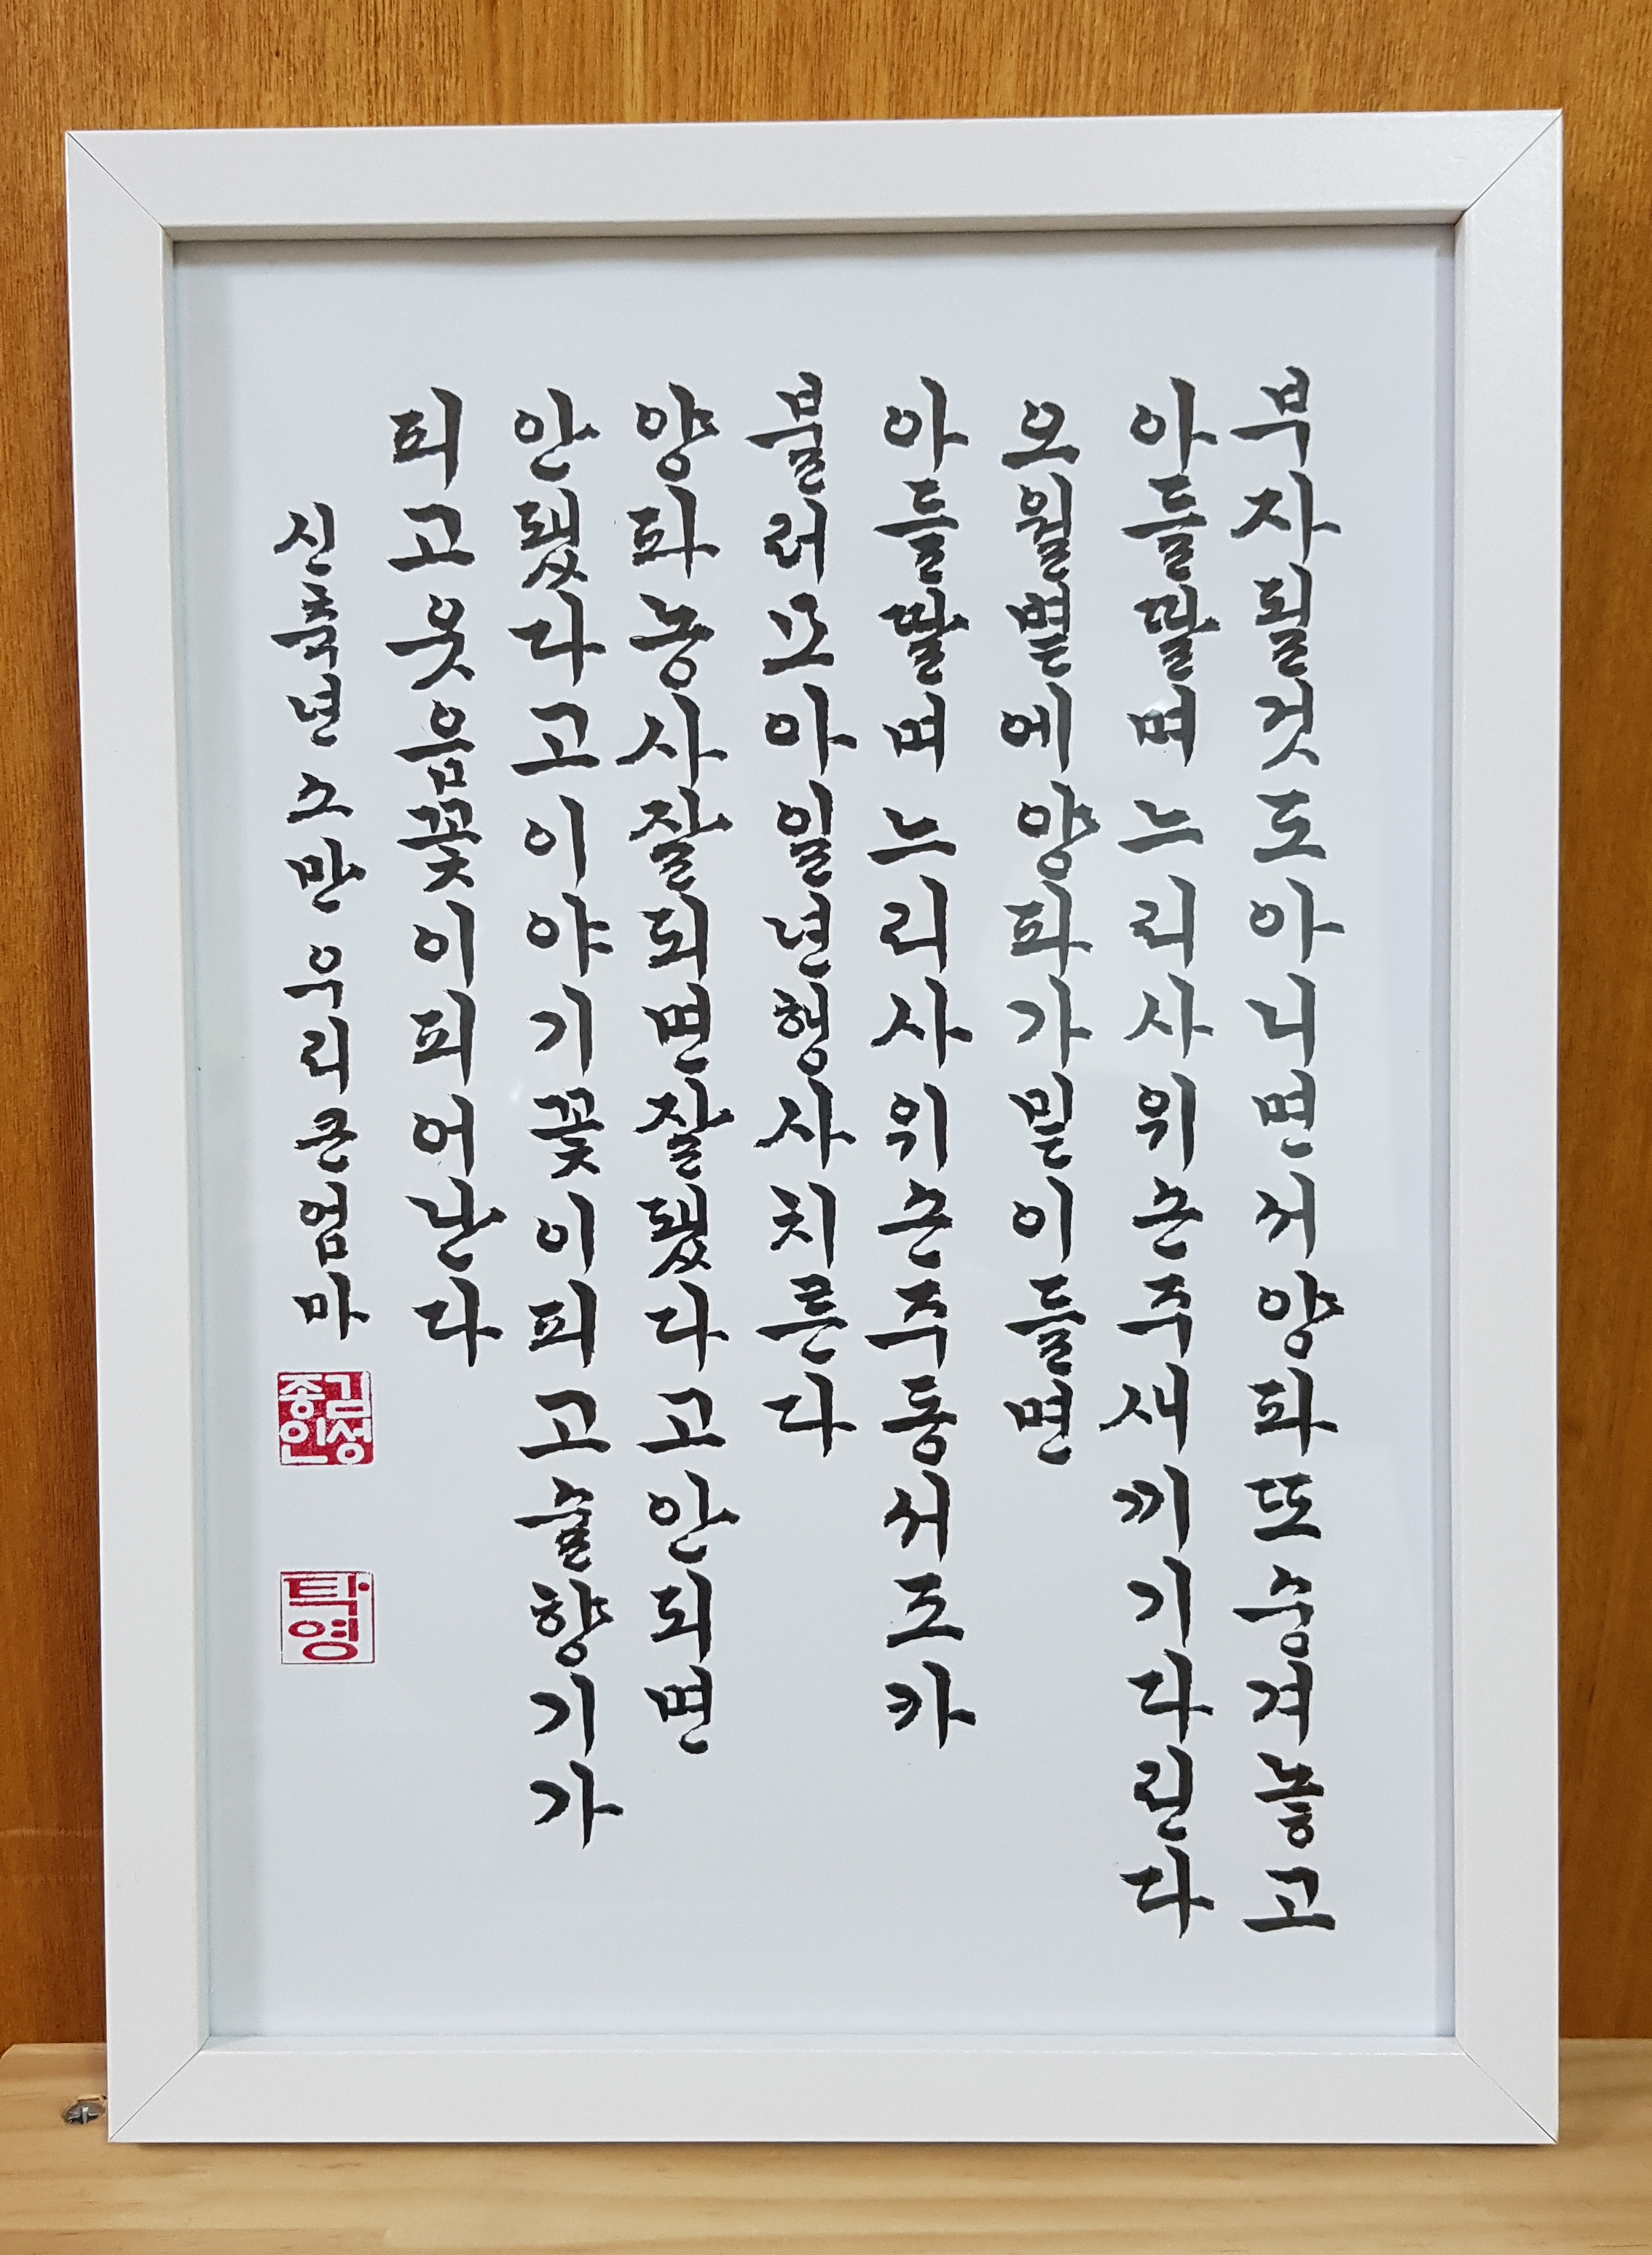 부자될것도아니면서양파또숭겨놓고
아들딸며느리사위손주새끼기다린다
오월볕에양파가밑이들면
아들딸며느리사위손주동서조카
불러모아일년행사치른다
양파농사잘되면잘됐다고안되면
안됐다고이야기꽃이피고술향기가
피고웃음꽃이피어난다
신축년소만우리큰엄마
김성종인
탁영